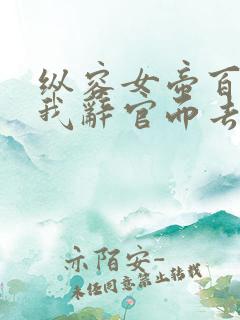 纵容女帝百
我辞官而去
亦陌安-
未经同意禁止转载